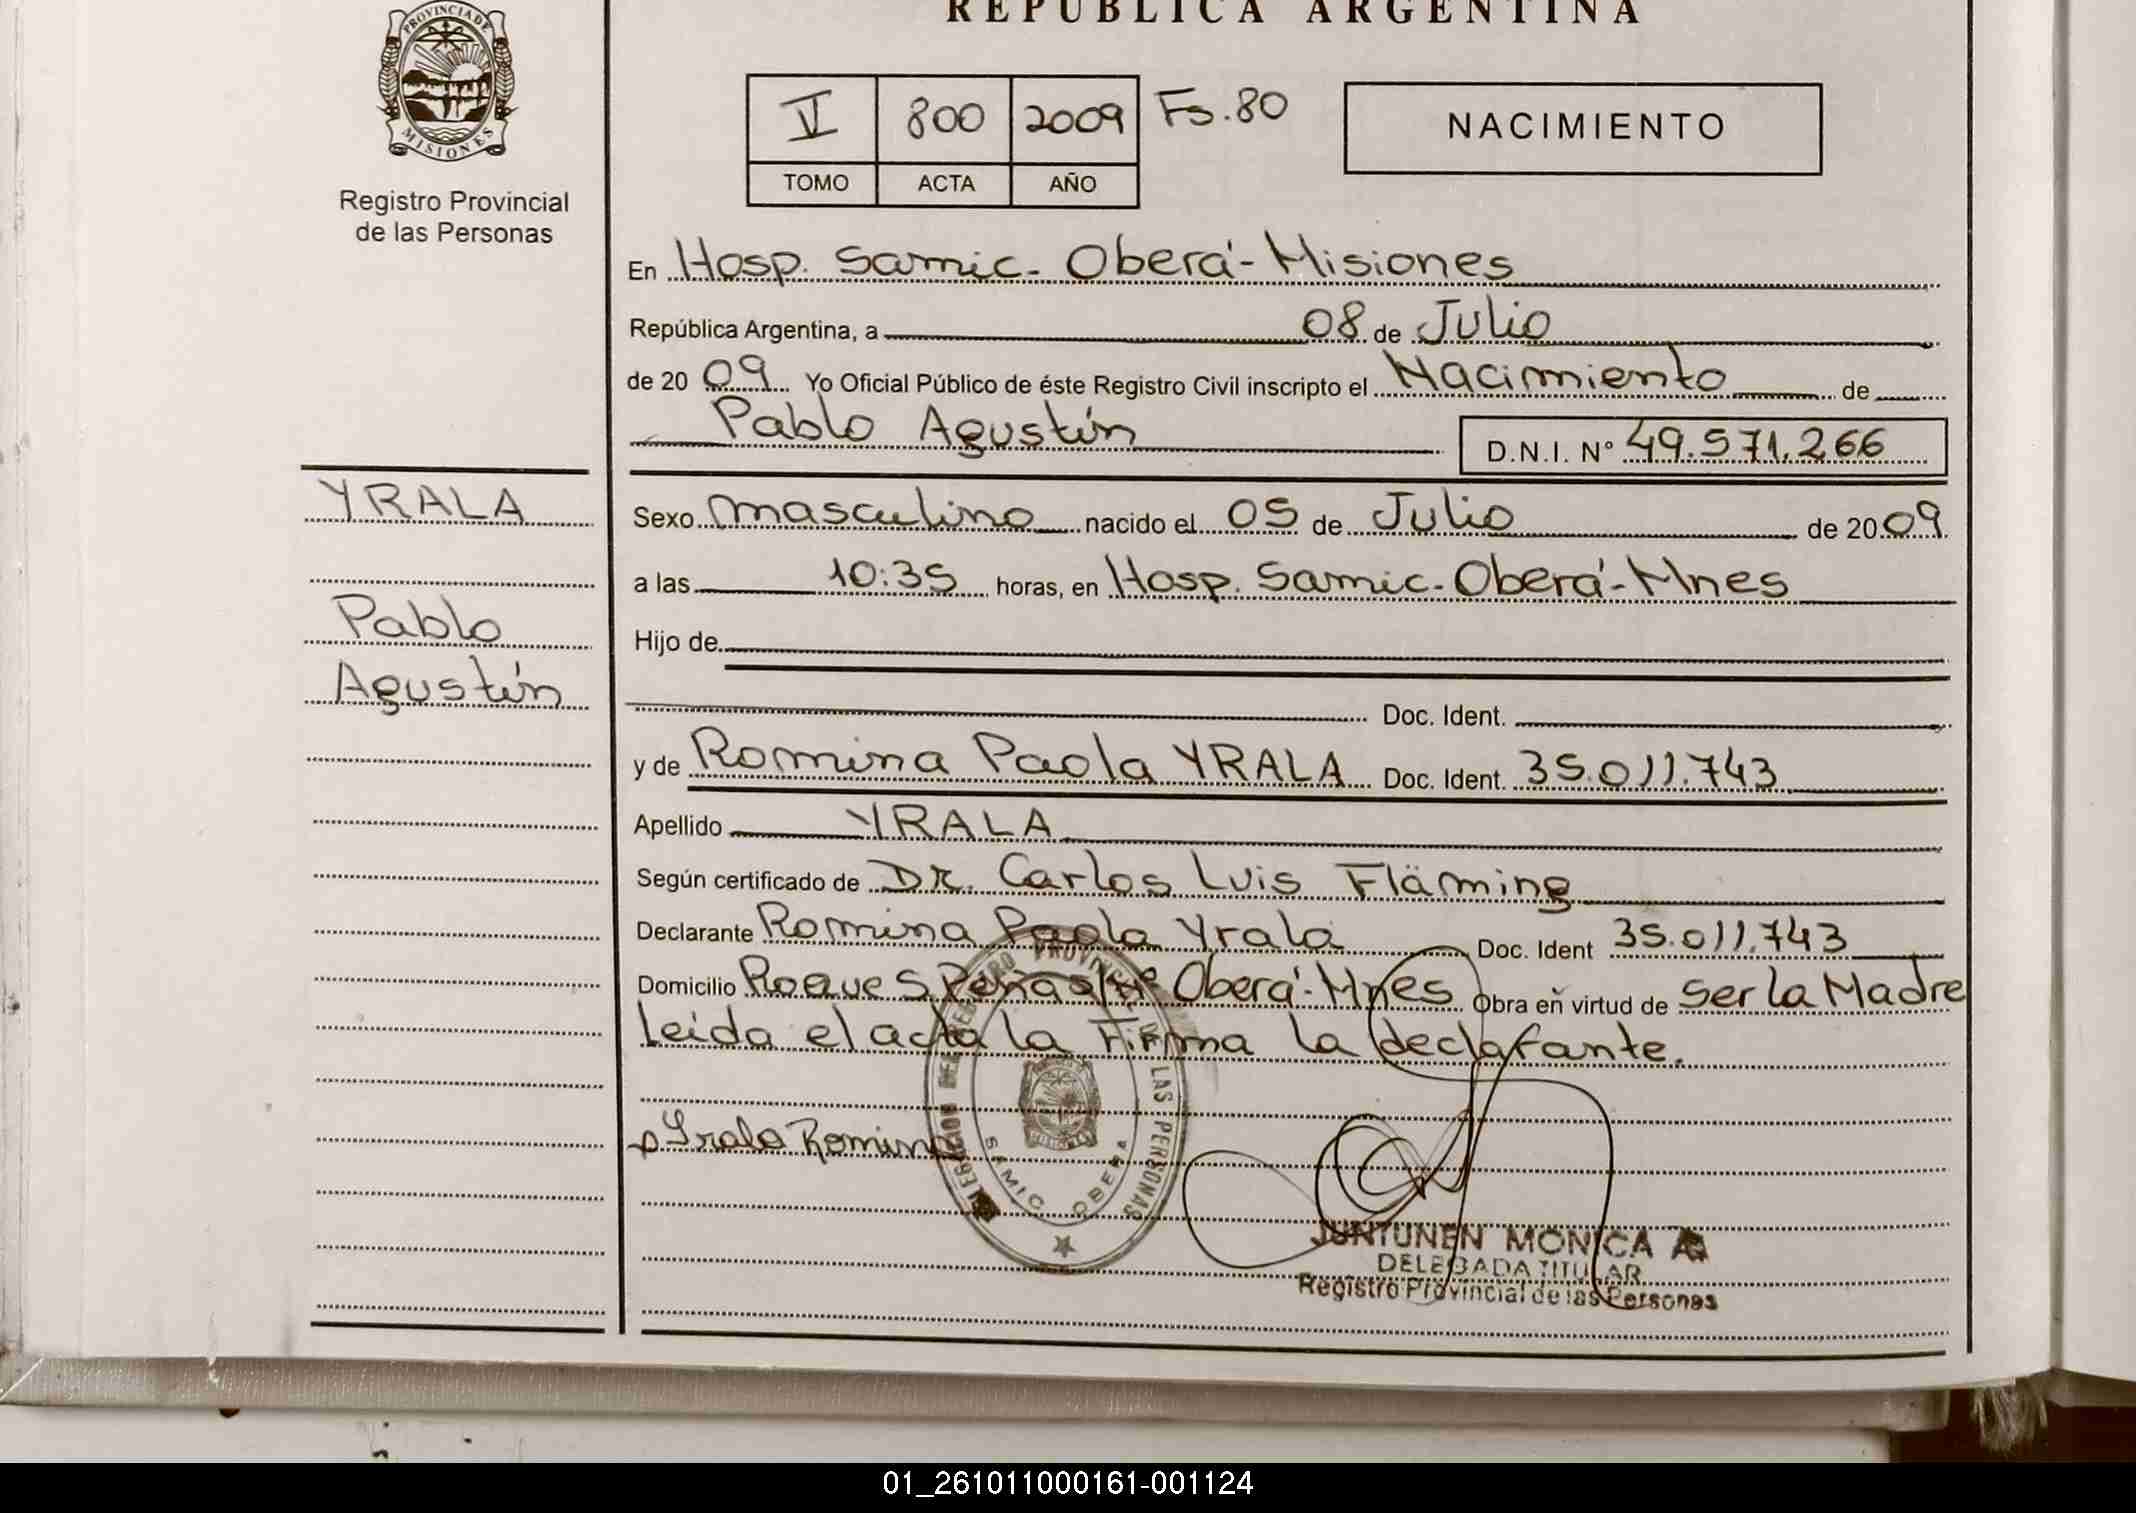 REPUBLICA ARGENTINA
PROVINCIA DE
MISIONES
Registro Provincial
de las Personas
V 800 2009 Fs. 80
TOMO ACTA AÑO
NACIMIENTO
En Hosp. Samic. Oberá-Misiones
República Argentina, a 08 de Julio
de 20 09 Yo Oficial Público de éste Registro Civil inscripto el Nacimiento de
Pablo Agustín D.N.I. Nº 49.571.266
YRALA
Pablo
Agustín
Sexo masculino nacido el 05 de Julio de 20 09
a las 10:35 horas, en Hosp. Samic-Oberá-Mnes
Hijo de
Doc. Ident.
y de Romina Paola YRALA Doc. Ident. 35.011.743
Apellido YRALA
Según certificado de DR. Carlos Luis Fläming
Declarante Romina Paola Yrala Doc. Ident 35.011.743
Domicilio Roque S. Peña s/Nº Oberá-Mnes Obra en virtud de ser la Madre
Leída el acta la Firma la declarante.
Yrala Romina
PROVINCIAL DE LAS PERSONAS
SAMIC OBERA
JUNTUNEN MONICA A.
DELEGADA TITULAR
Registro Provincial de las Personas
01_261011000161-001124